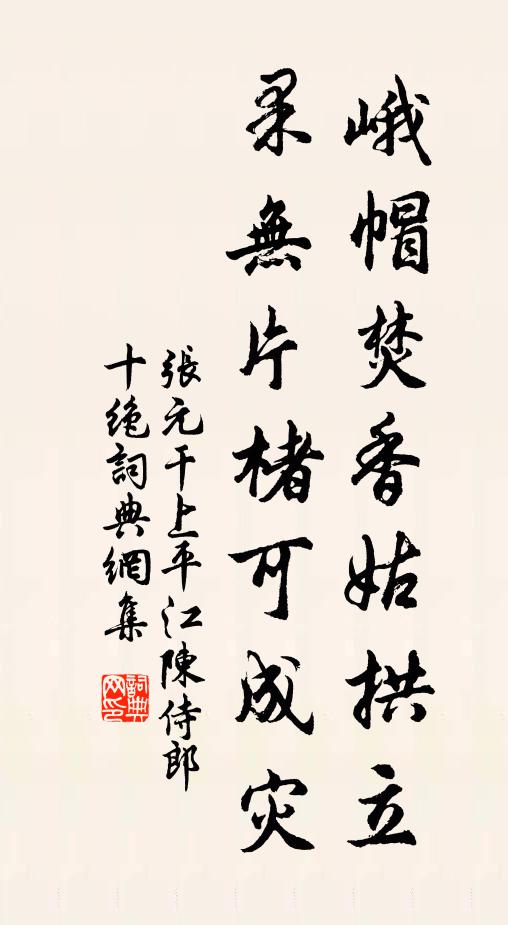 峨帽焚香姑拱立
果無片楮可成灾
張元干上平江陳侍郎
十絶詞典網集
詞典网印